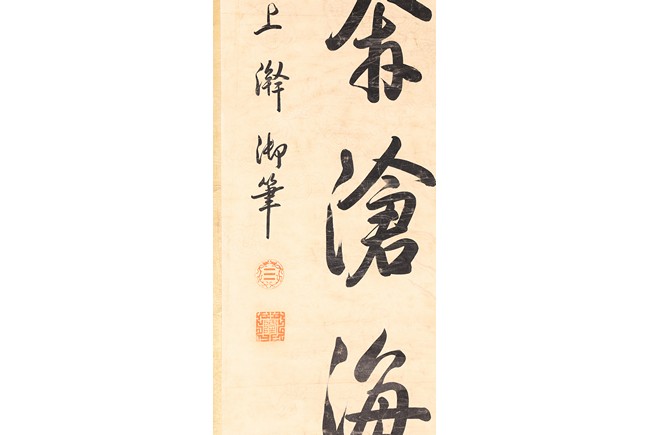 滄海
上澣御筆